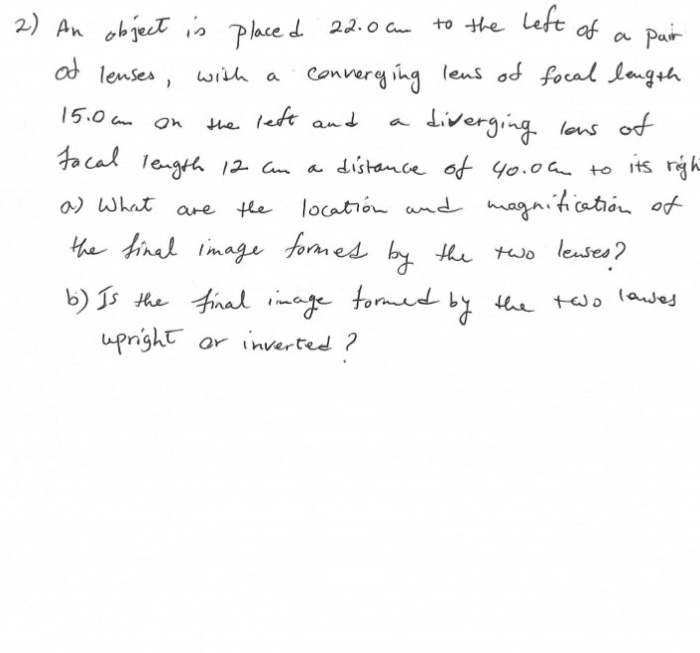 2) An object is placed 22.0 cm to the left of a pair
of lenses, with a converging lens of focal length
15.0 cm on the left and a diverging lens of
focal length 12 cm a distance of 40.0 cm to its righ
a) What are the location and magnification of
the final image formed by the two lenses?
b) Is the final image formed by the two lenses
upright or inverted?